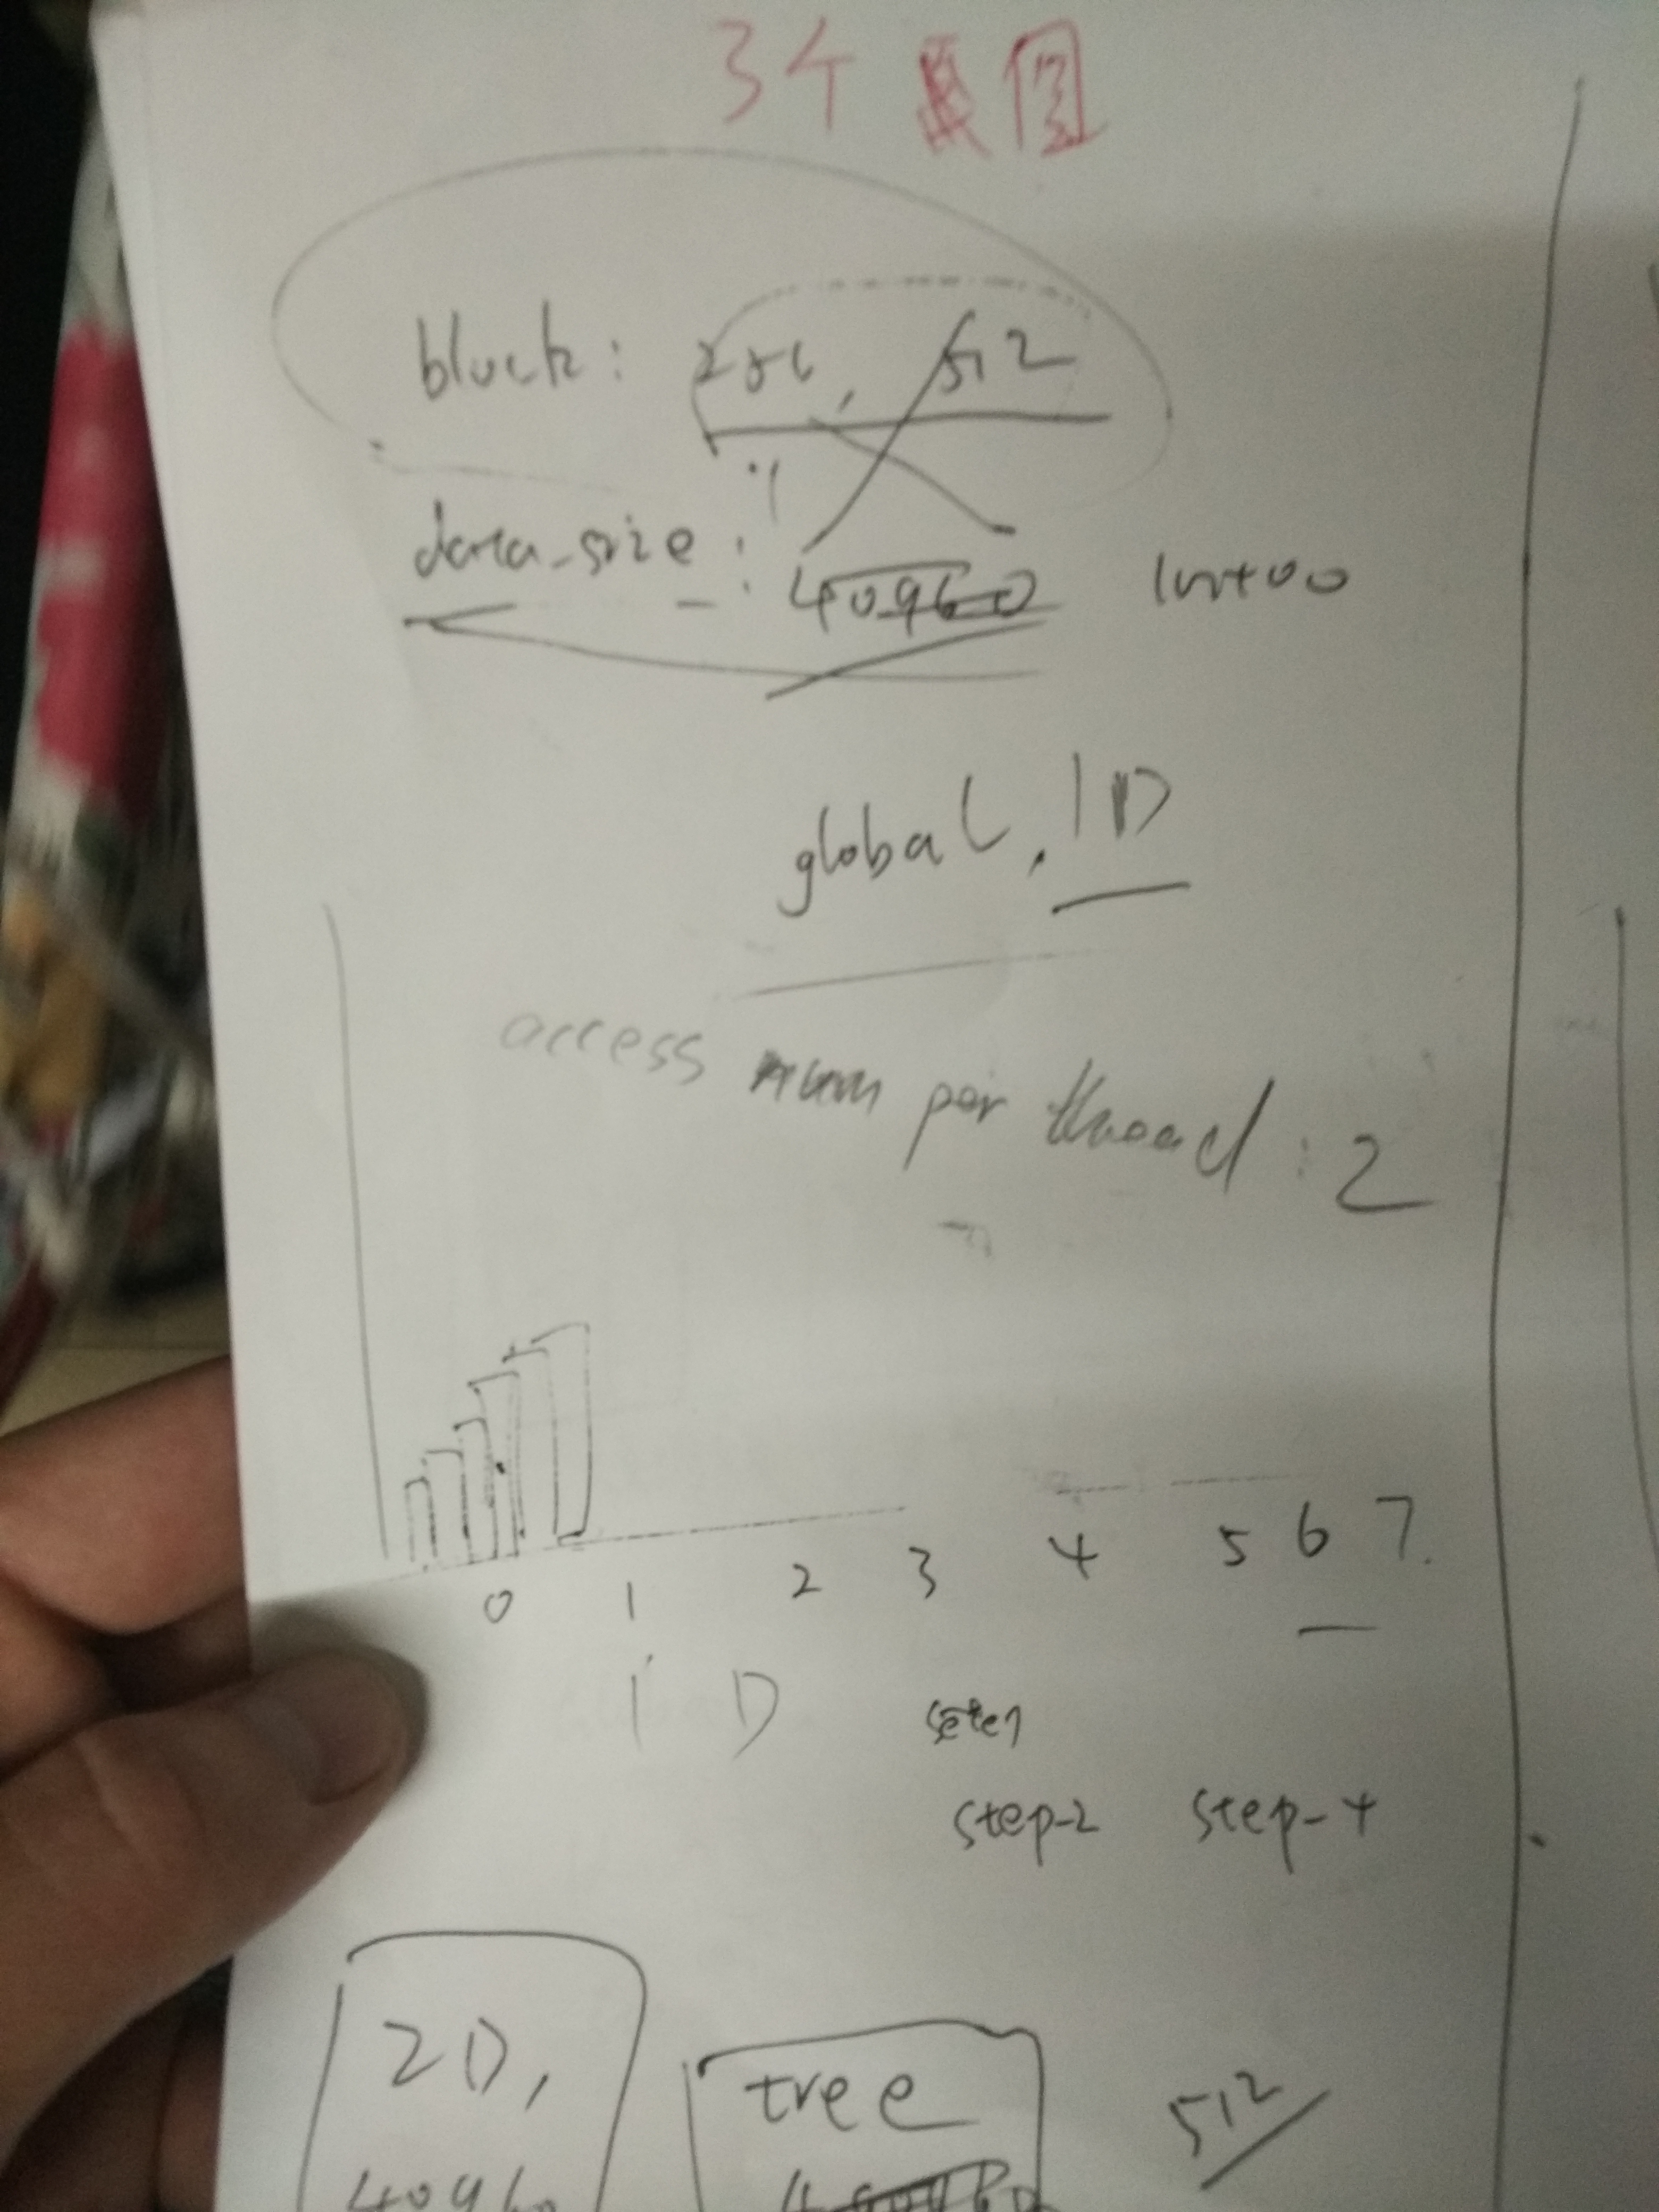 3个 图
block: 256, 512
data_size: 40960 102400
global, 1D
access num per thread: 2
0 1 2 3 4 5 6 7.
1D
step-2 step-4
2D, tree 512
40960 40960